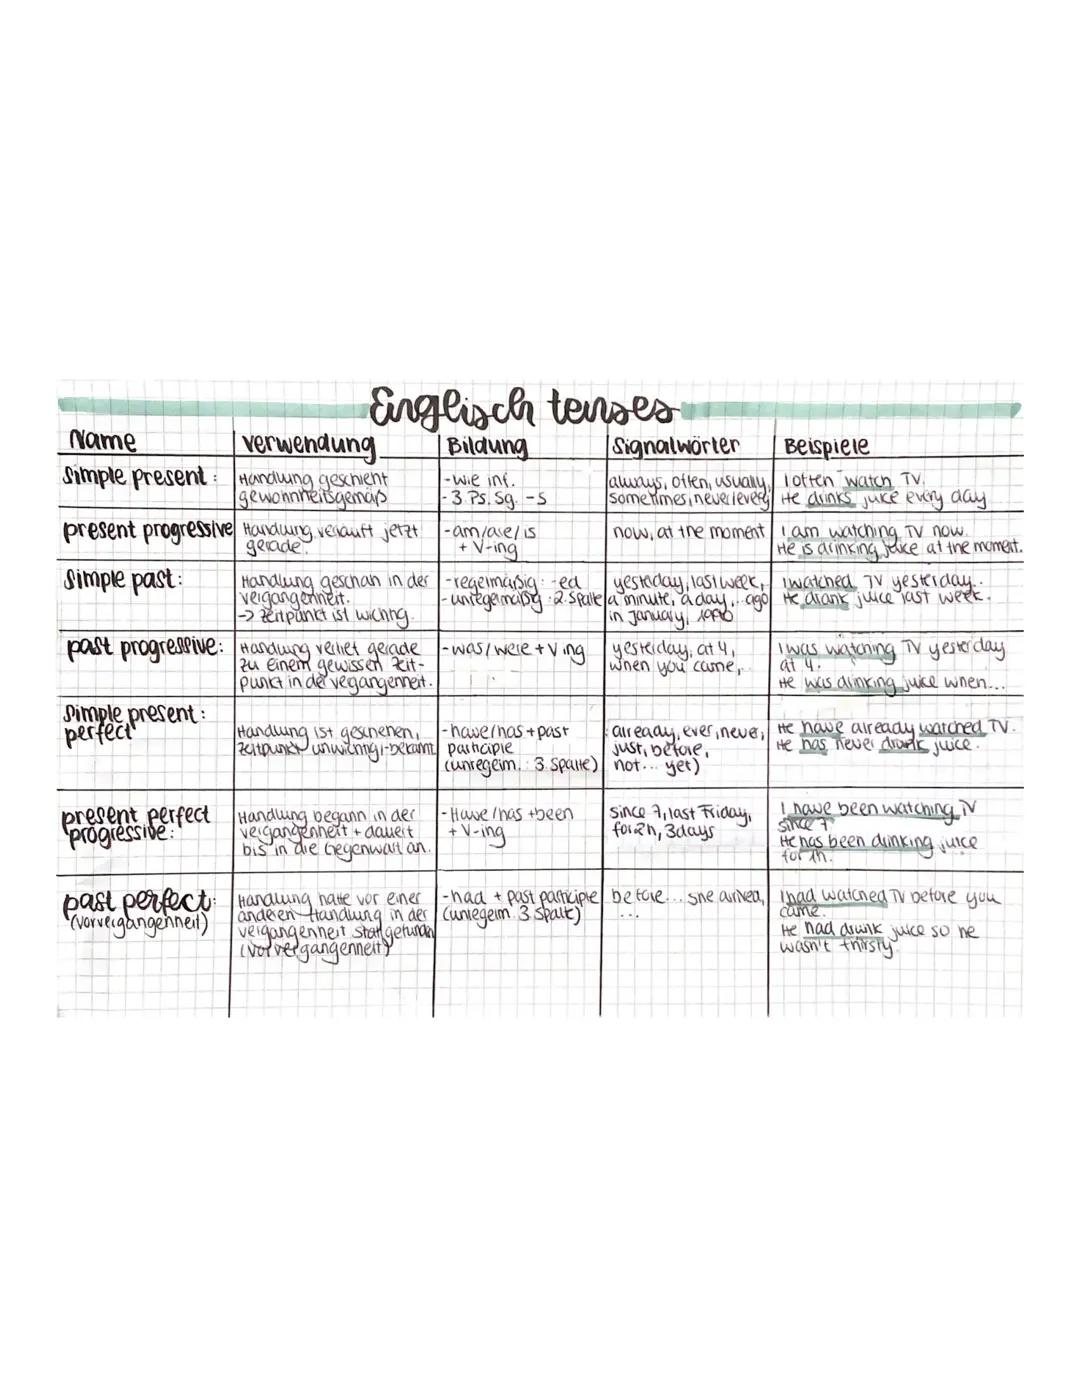 Englisch tenses
Name
Verwendung
Bildung
Signalwörter
Beispiele
Simple present:
Handlung geschieht
gewohnheitsgemäß
-wie inf.
-3. Ps. Sg. -s
always, often, usually,
sometimes, never/every
I often watch TV.
He drinks juice every day
present progressive
Handlung verläuft jetzt
gerade.
-am/are/is
+ V-ing
now, at the moment
I am watching TV now.
He is drinking juice at the moment.
Simple past:
Handlung geschah in der
vergangenheit.
-> Zeitpunkt ist wichtig.
-regelmäßig: -ed
-unregelmäßig: 2. Spalte
yesterday, last week,
a minute, a day... ago
in january, 1990
I watched TV yesterday.
He drank juice last week.
past progressive:
Handlung verlief gerade
zu einem gewissen Zeit-
punkt in der vegangenheit.
-was/were + V ing
yesterday, at 4,
when you came,..
I was watching TV yesterday
at 4.
He was drinking juice when...
Simple present:
perfect
Handlung ist geschehen,
Zeitpunkt unwichtig/-bekannt
-have/has + past
participle
(unregelm.: 3. Spalte)
already, ever, never,
just, before,
not... yet)
He have already watched TV.
He has never drunk juice.
present perfect
progressive:
Handlung begann in der
vergangenheit + dauert
bis in die Gegenwart an.
-Have/has +been
+ V-ing
since 7, last Friday,
for 2h, 3days
I have been watching TV
since 7
He has been drinking juice
for 1h.
past perfect:
(Vorvergangenheit)
Handlung hatte vor einer
anderen Handlung in der
vergangenheit stattgefunden
(Vorvergangenheit)
-had + past participle
(unregelm. 3. Spalte)
before... she arrived,
...
I had watched TV before you
came.
He had drunk juice so he
wasn't thirsty.